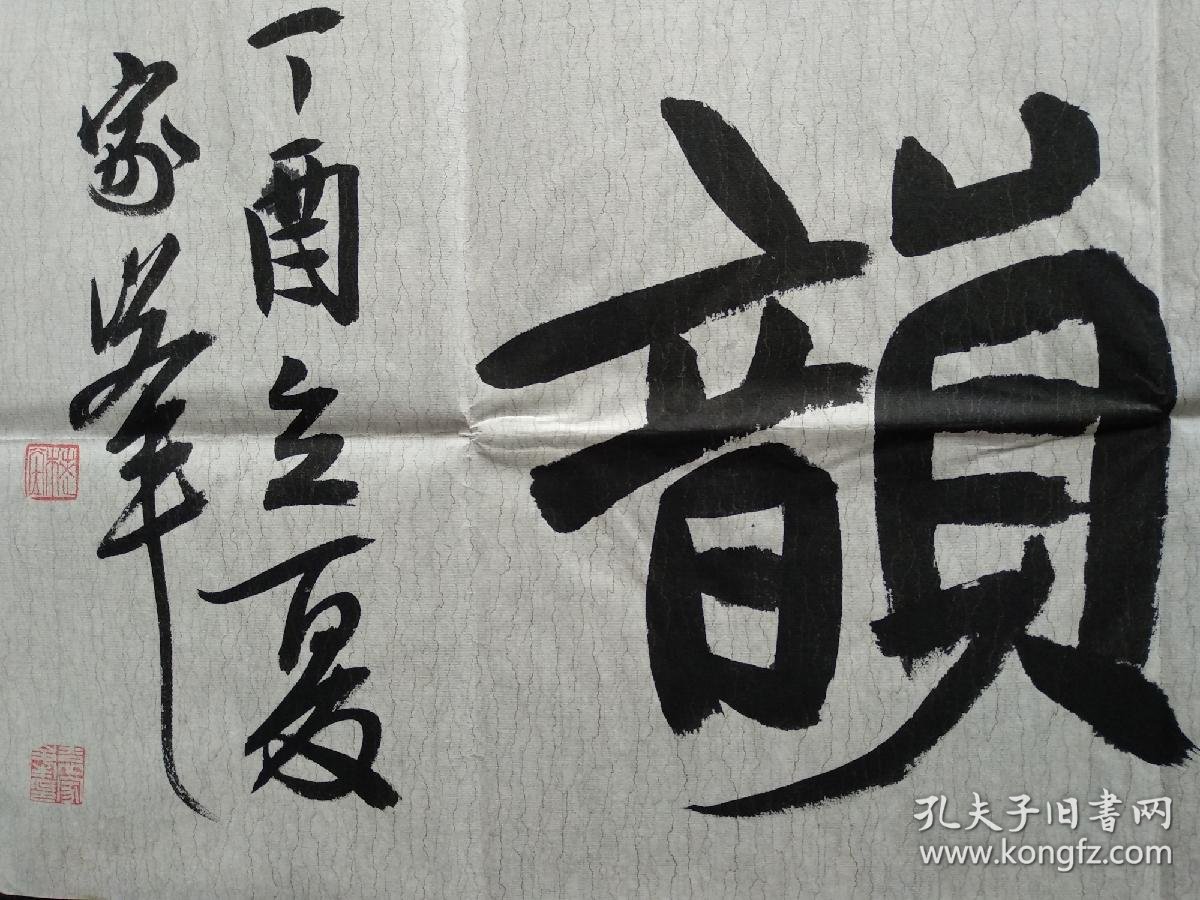 韻
丁酉立夏
家峯
孔夫子旧書网
www.kongfz.com